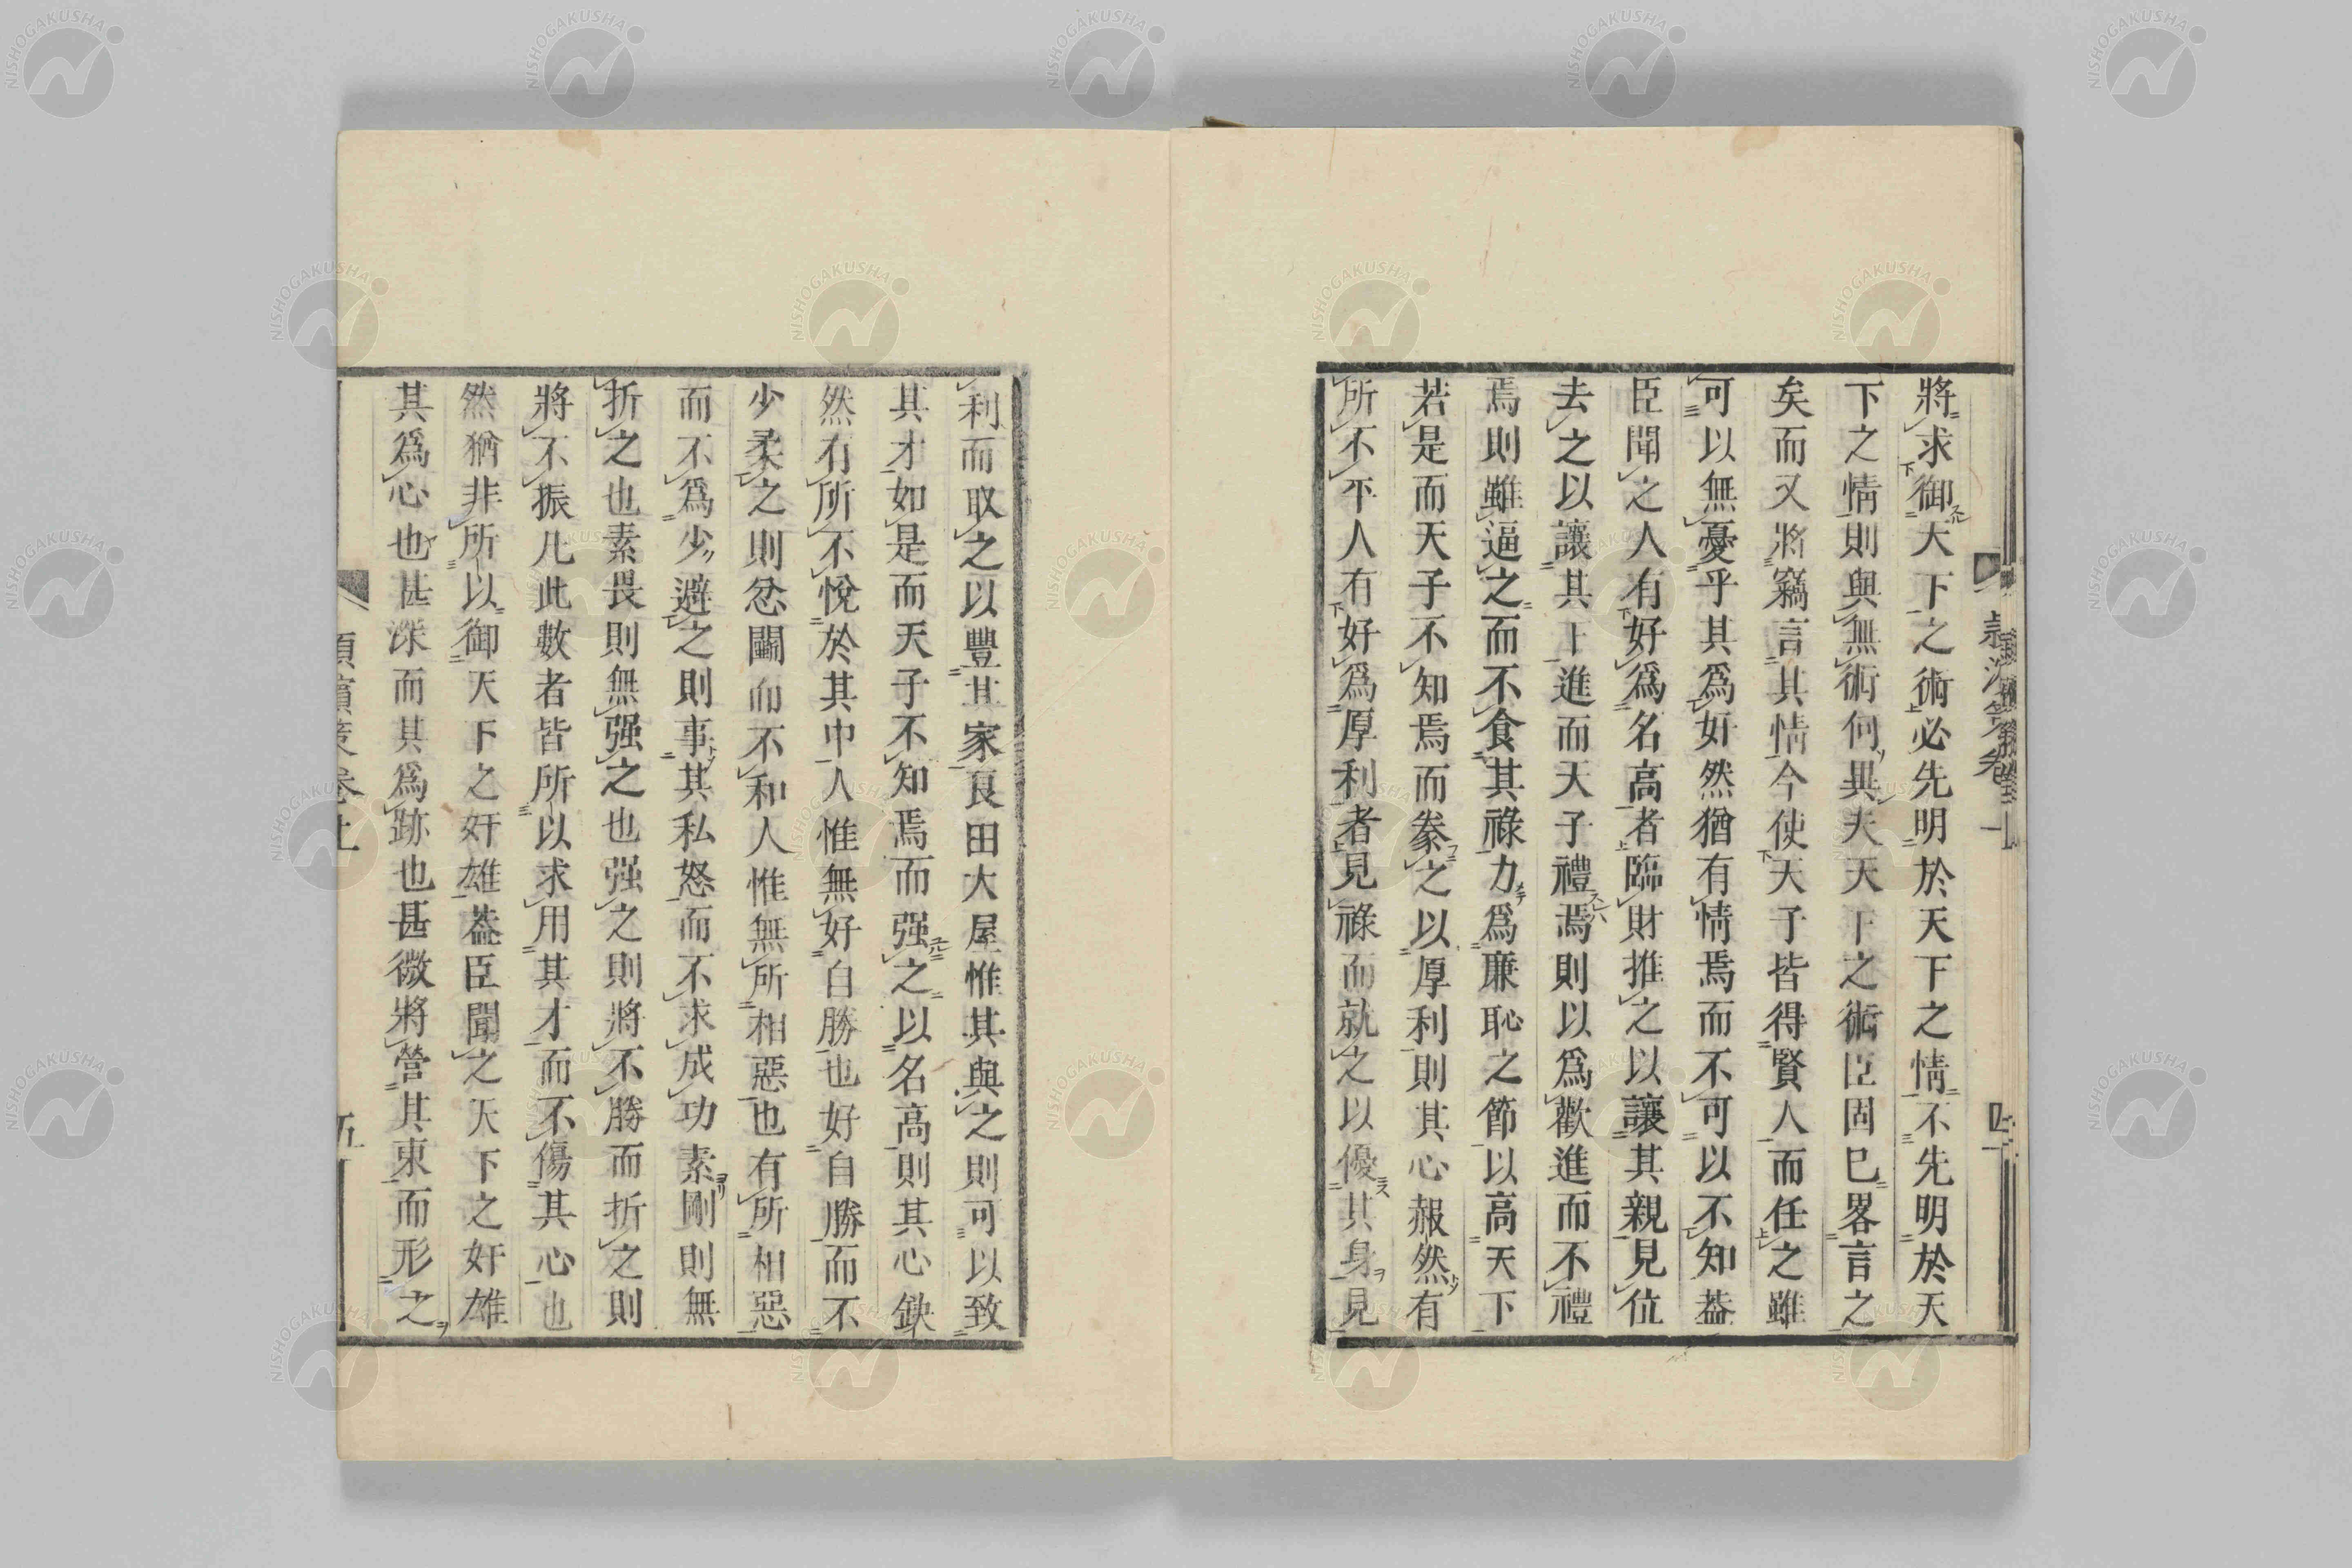 將求御天下之術必先明於天下之情不先明於天
下之情則與無術何異夫天下之術臣固已畧言之
矣而又將竊言其情今使天子皆得賢人而任之雖
可以無憂乎其爲奸然猶有情焉而不可以不知葢
臣聞之人有好爲名高者臨財推之以讓其親見位
去之以讓其上進而天子禮焉則以爲歡進而不禮
焉則雖逼之而不食其祿力爲廉恥之節以高天下
若是而天子不知焉而豢之以厚利則其心赧然有
所不平人有好爲厚利者見祿而就之以優其身見
利而取之以豐其家良田大屋惟其與之則可以致
其才如是而天子不知焉而强之以名高則其心缺
然有所不悅於其中人惟無好自勝也好自勝而不
少柔之則忿鬭而不和人惟無所相惡也有所相惡
而不爲少避之則事其私怒而不求成功素剛則無
折之也素畏則無强之也强之則將不勝而折之則
將不振凡此數者皆所以求用其才而不傷其心也
然猶非所以御天下之奸雄葢臣聞之天下之奸雄
其爲心也甚深而其爲跡也甚微將營其東而形之
潁濱策卷上
五
NISHOGAKUSHA